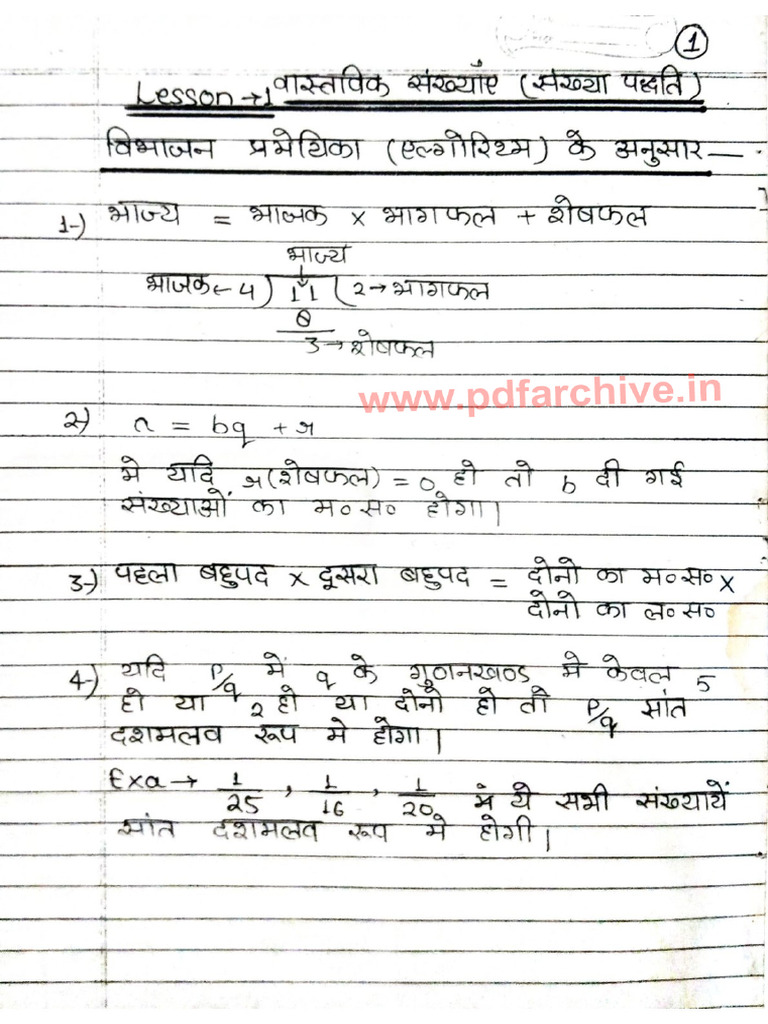 1
Lesson → 1 वास्तविक संख्याएं (संख्या पद्धति)
विभाजन प्रमेयिका (एल्गोरिथ्म) के अनुसार —
1-) भाज्य = भाजक × भागफल + शेषफल
भाज्य
भाजक ← 4 ) 11 ( 2 → भागफल
8
3 → शेषफल
www.pdfarchive.in
2-) a = bq + r
मे यदि r (शेषफल) = 0 हो तो b दी गई
संख्याओं का म० स० होगा।
3-) पहला बहुपद × दूसरा बहुपद = दोनो का म० स० ×
दोनो का ल० स०
4-) यदि P/q में q के गुणनखण्ड मे केवल 5
हो या 2 हो या दोनो हो तो P/q सांत
दशमलव रूप मे होगा।
Exa → 1/25 , 1/16 , 1/20 मे ये सभी संख्यायें
सांत दशमलव रूप मे होगी।